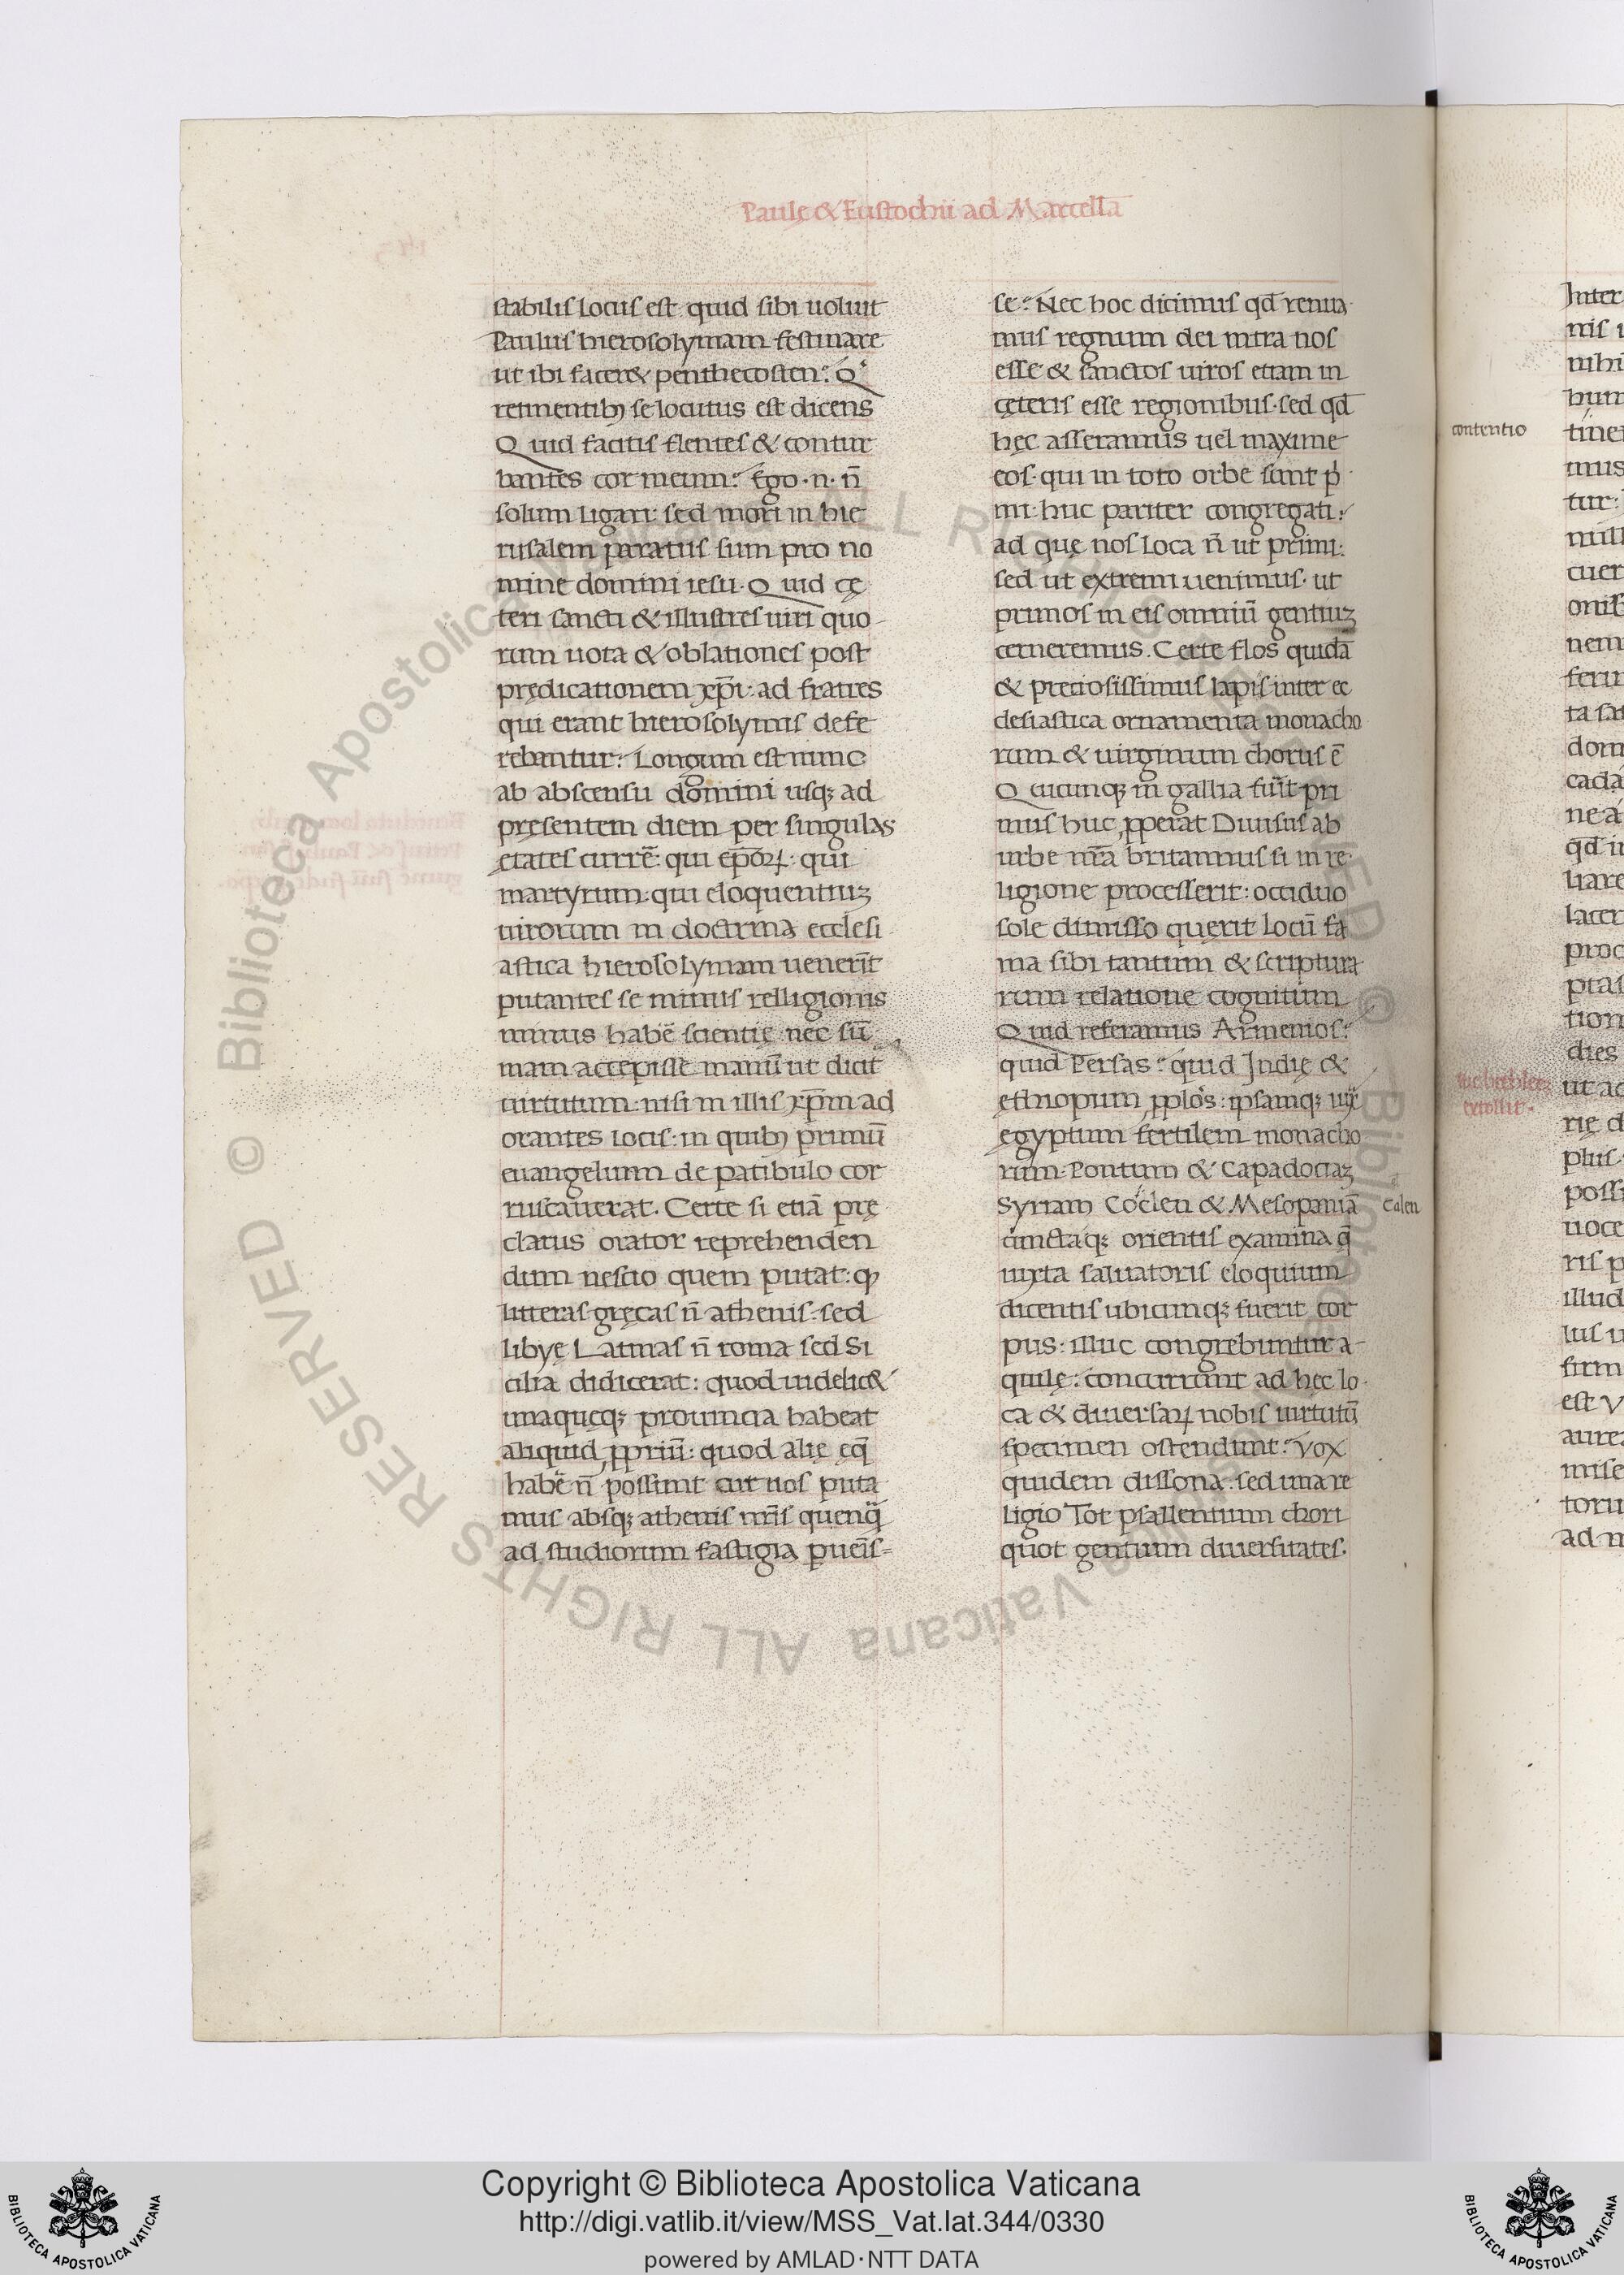 Paulę & Eustochii ad Marcellā
stabilis locus est: quid sibi uoluit
Paulus hierosolymam festinare
ut ibi facer& penthecosten? Q
retinentibꝫ se locutus est dicens
Quid facitis flentes & contur
bantes cor meum? Ego .n. n̄
solum ligari sed mori in hie
rusalem paratus sum pro no
mine domini iesu. Quid cę
teri sancti & illustres uiri quo
rum uota & oblationes post
prędicationem xp̄i: ad fratres
qui erant hierosolymis defe
rebantur? Longum est nunc
ab abscensu domini usqꝫ ad
pręsentem diem per singulas
ętates currē: qui ep̄oꝝ: qui
martyrum: qui eloquentiuꝫ
uirorum in doctrina ecclesi
astica hierosolymam uenerīt
putantes se minus relligionis
minus habē scientię nec sū
mam accepisse manū ut dicit̄
uirtutum: nisi in illis xp̄m ad
orantes locis: in quibꝫ primū
euangelium de patibulo cor
ruscauerat. Certe si etiā prę
clarus orator reprehenden
dum nescio quem putat: ꝙ
litteras gręcas n̄ athenis: sed
libyę Latinas n̄ roma sed Si
cilia didicerat: quod uidelic&
unaquęqꝫ prouincia habeat
aliquid ꝓpriū: quod alię ęq̄
habē n̄ possint cur nos puta
mus absqꝫ athenis nr̄is quenq̄
ad studiorum fastigia ꝑuēis-
se? Nec hoc dicimus qd̄ renua
mus regnum dei intra nos
esse & sanctos uiros etiam in
cęteris esse regionibus. sed qd̄
hęc asseramus uel maxime
eos. qui in toto orbe sunt p
mi. huc pariter congregati:
ad quę nos loca n̄ ut primi:
sed ut extremi uenimus. ut
primos in eis omniū gentiuꝫ
cerneremus. Certe flos quidā
& preciosissimus lapis inter ec
clesiastica ornamenta monacho
rum & uirginum chorus ē
Qcuicunqꝫ in gallia fuit pri
mus huc ꝓperat Diuisus ab
urbe nr̄a britannus si in re
ligione processerit: occiduo
sole dimisso quęrit locū fa
ma sibi tantum & scriptura
rum relatione cognitum
Quid referamus Armenios?
quid Persas? quid Indię &
ethiopum ꝓplos: ipsamqꝫ iux̄
egyptum fertilem monacho
rum: Pontum & Capadociaꝫ
Syriam Coclen & Mesopaniā
Calen
cunctaqꝫ orientis examina q̄
iuxta saluatoris eloquium
dicentis ubicunqꝫ fuerit cor
pus: illuc congrebuntur a-
quilę: concurrunt ad hęc lo
ca & diuersaꝝ nobis uirtutū
specimen ostendunt. Vox
quidem dissona: sed una re
ligio Tot psallentium chori
quot gentium diuersitates.
contentio
Copyright © Biblioteca Apostolica Vaticana
http://digi.vatlib.it/view/MSS_Vat.lat.344/0330
powered by AMLAD·NTT DATA
BIBLIOTECA APOSTOLICA VATICANA
BIBLIOTECA APOSTOLICA VATICANA